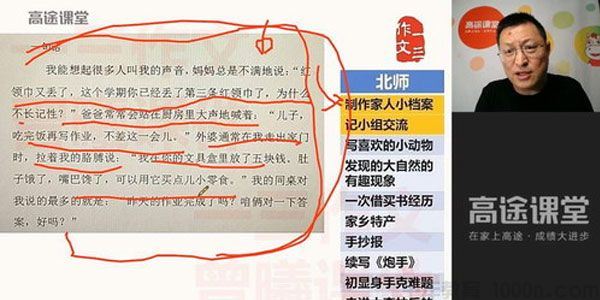 高途课堂
我能想起很多人叫我的声音，妈妈总是不满地说：“红
领巾又丢了，这个学期你已经丢了第三条红领巾了，为什么
不长记性？”爸爸常常会站在厨房里大声地喊着：“儿子，
吃完饭再写作业，不差这一会儿。”外婆通常在我走出家门
时，拉着我的胳膊说：“我在你的文具盒里放了五块钱，肚
子饿了，嘴巴馋了，可以用它买点儿小零食。”我的同桌对
我说的最多的就是：“昨天的作业完成了吗？咱俩对一下答
案，好吗？”
一三
作文
北师
制作家人小档案
记小组交流
写喜欢的小动物
发现的大自然的
有趣现象
一次借买书经历
家乡特产
手抄报
续写《炮手》
初显身手克难题
高途课堂
高途课堂
在家上高途·成绩大进步